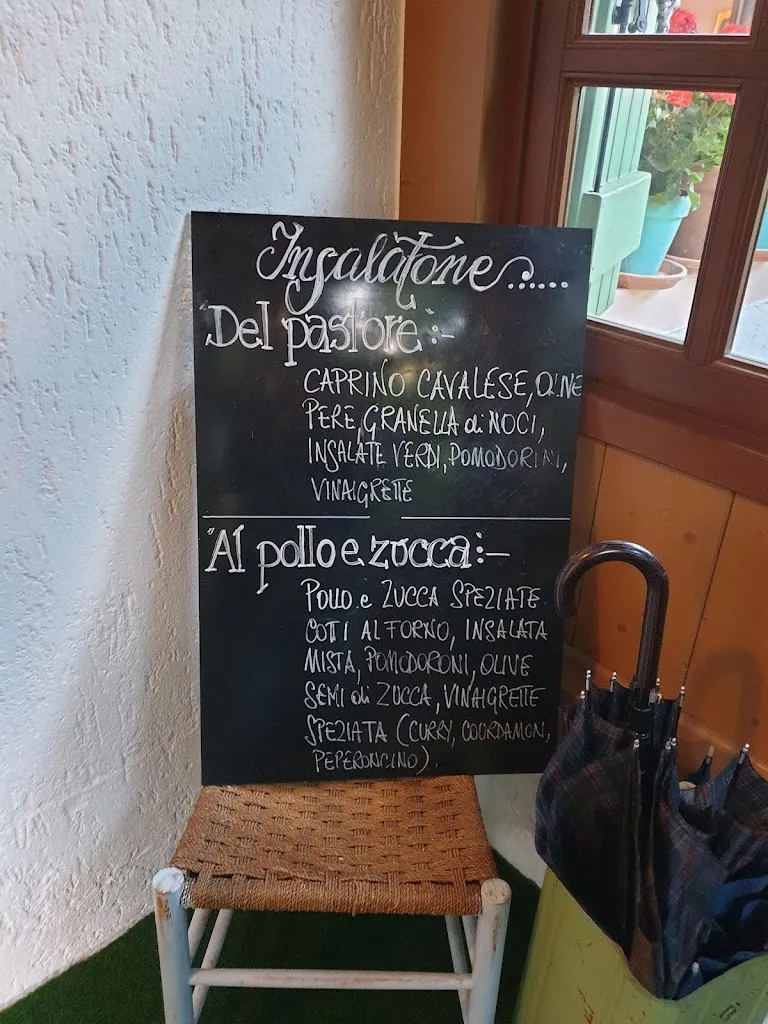 Insalatone......
"Del pastore":-
CAPRINO CAVALESE, OLIVE
PERE, GRANELLA di NOCI,
INSALATE VERDI, POMODORINI,
VINAIGRETTE
"Al pollo e zucca:-
POLLO e ZUCCA SPEZIATE
COTTI AL FORNO, INSALATA
MISTA, POMODORONI, OLIVE
SEMI di ZUCCA, VINAIGRETTE
SPEZIATA (CURRY, COORDAMON,
PEPERONCINO).